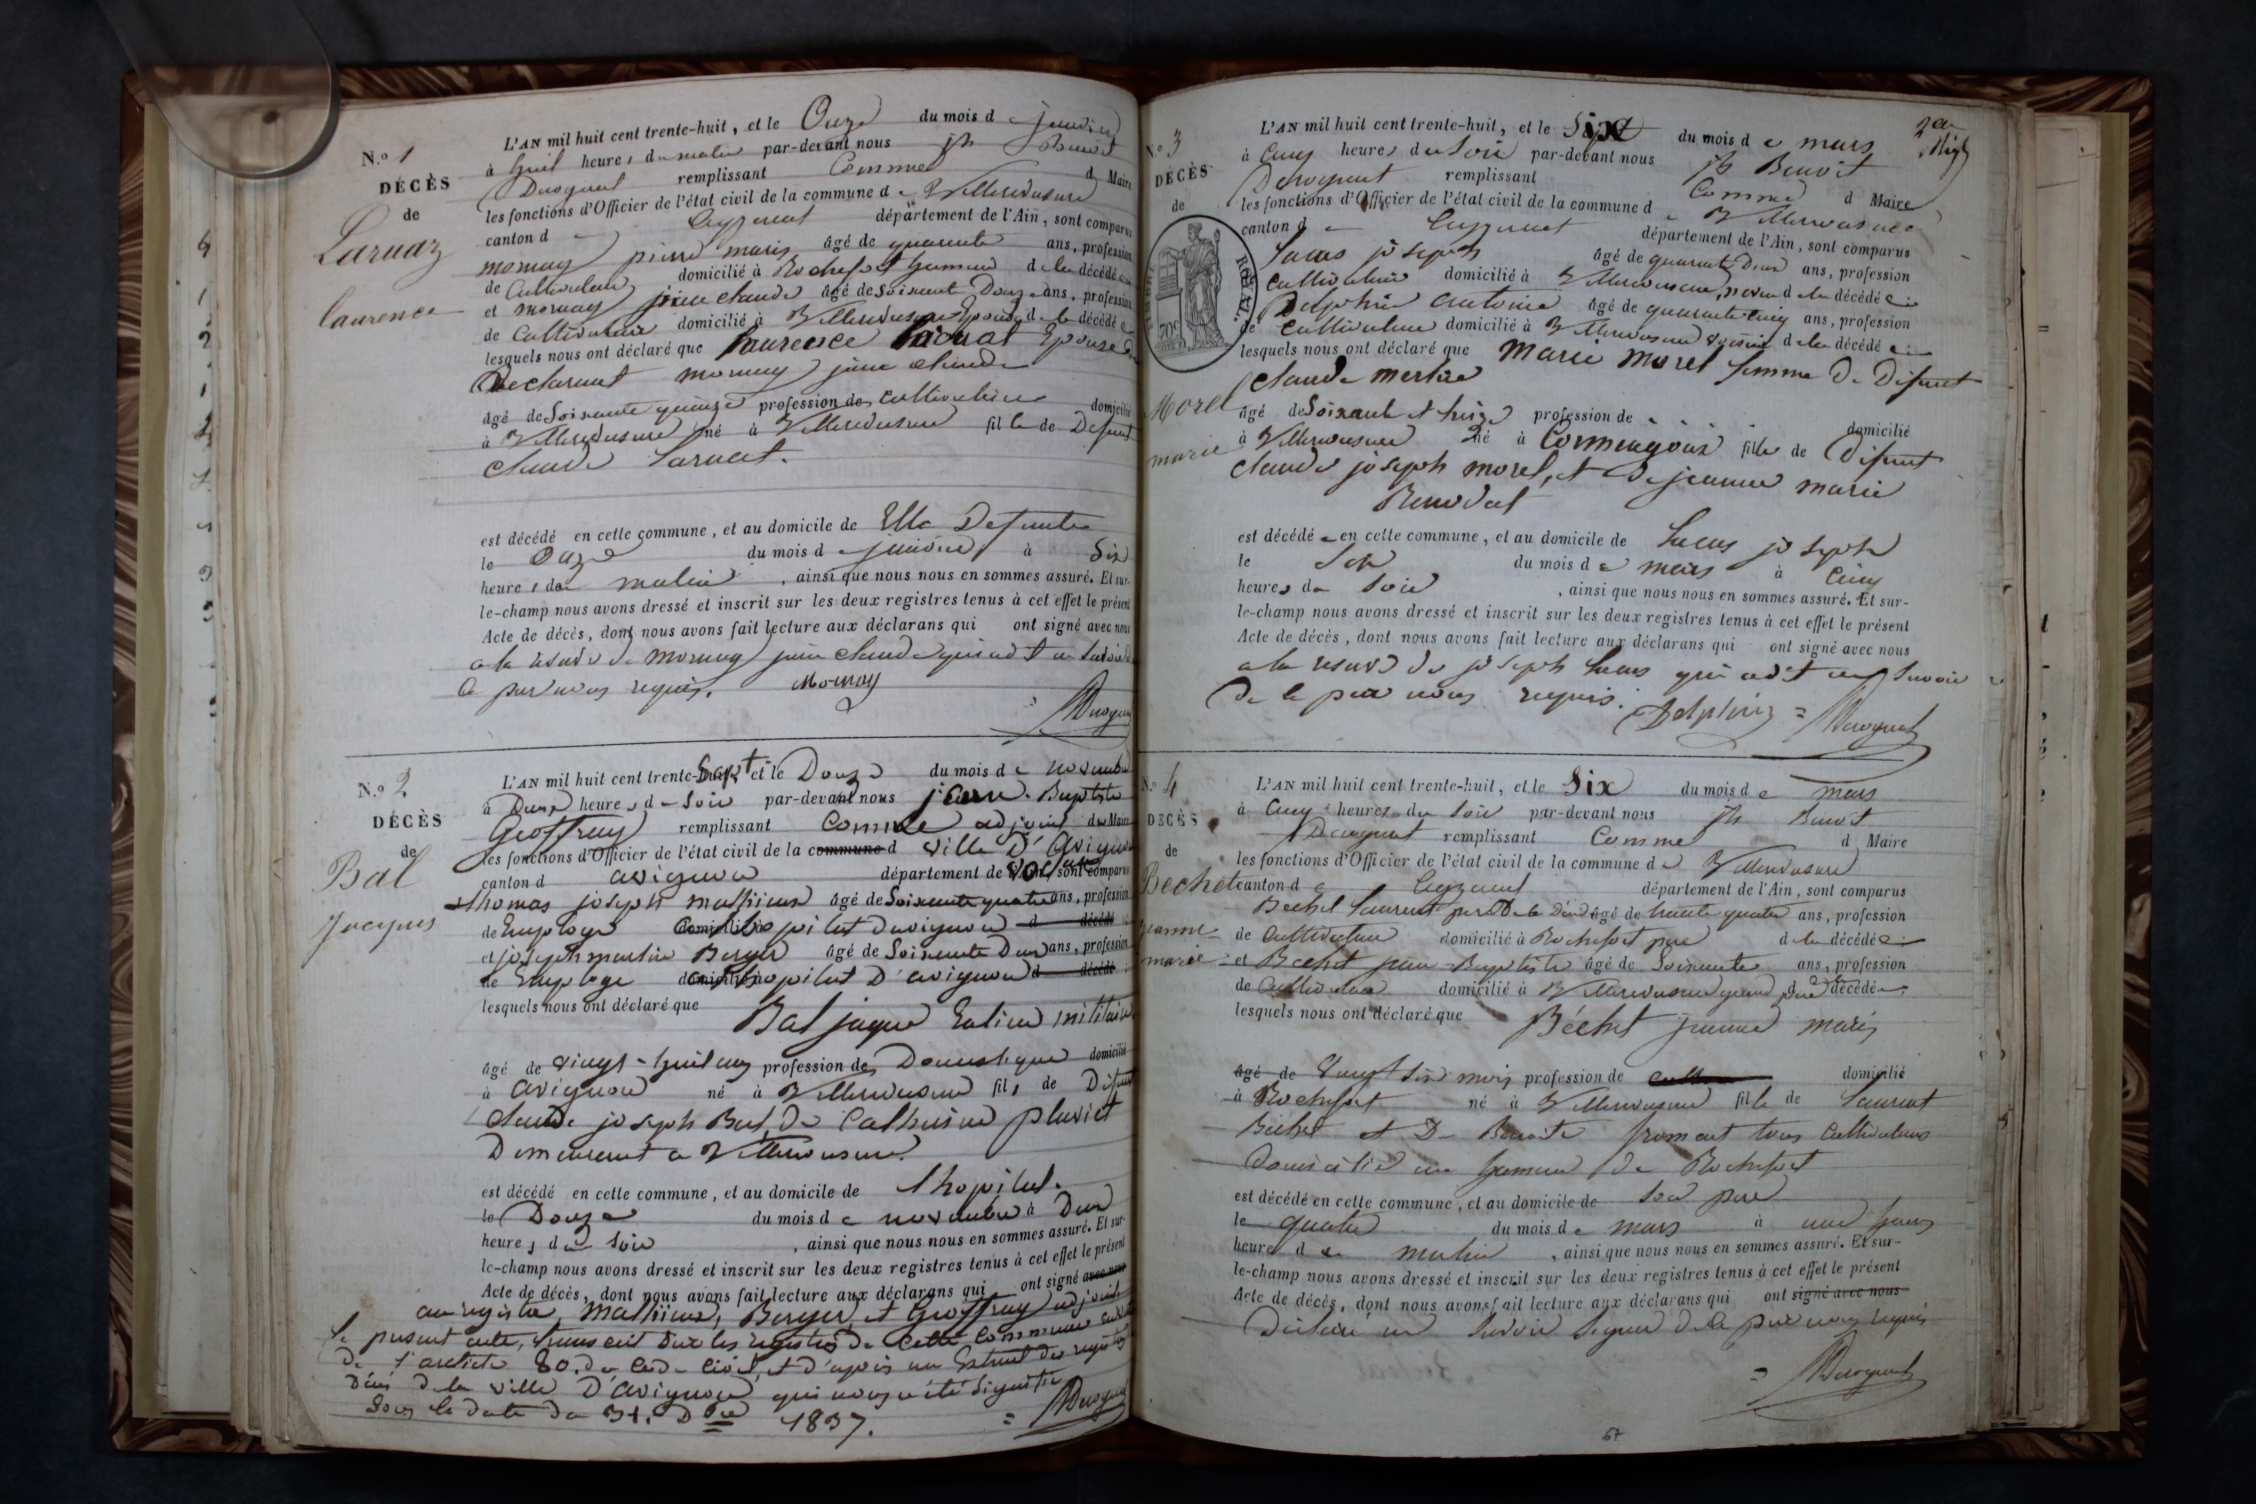 N.º 1
DÉCÈS
de
Laruaz
laurence
L'AN mil huit cent trente-huit, et le Onze du mois d e janvier
à huit heures du matin par-devant nous jh Benoit
remplissant Comme d Maire
les fonctions d'Officier de l'état civil de la commune d e Villereversure
canton d e Ceyzeriat département de l'Ain, sont comparus
mornay pierre marie âgé de quarante ans, profession
de Cultivateur domicilié à Rochefort hameau d e la décédée
et mornay jean claude âgé de Soixante Douze ans, profession
de Cultivateur domicilié à Villereversure Epoux d e la décédée
lesquels nous ont déclaré que laurence laruat Epouse du
Declarant mornay jean claude
âgé de Soixante quinze profession de Cultivatrice domicilié
à Villereversure né à Villereversure fille de Defunt
claude laruat.
est décédé en cette commune, et au domicile de Elle Defunte
le onze du mois d e janvier à Six
heures du matin, ainsi que nous nous en sommes assuré. Et sur-
le-champ nous avons dressé et inscrit sur les deux registres tenus à cet effet le présent
Acte de décès, dont nous avons fait lecture aux déclarans qui ont signé avec nous
a la reserve de mornay jean claude qui a dit ne Savoir
de par nous requis. Mornay
N.º 2
DÉCÈS
de
Bal
Jacques
L'AN mil huit cent trente-Sept et le Douze du mois d e novembre
à Deux heures d u Soir par-devant nous jean Baptiste
Geoffroy remplissant Comme adjoint du Maire
les fonctions d'Officier de l'état civil de la commune d ville D'Avignon
canton d avignon département de Vaucluse sont comparus
thomas joseph mathieu âgé de Soixante quatre ans, profession
de Employé domicilié à l'hopital d'avignon d décédé
et joseph martin Berger âgé de Soixante Deux ans, profession
de Employé domicilié à l'hopital D'avignon d décédé
lesquels nous ont déclaré que
Bal jaque militaire
âgé de vingt-huit ans profession de Domestique domicilié
à avignon né à Villereversure fils de Défunt
claude joseph Bal, De Catherine pluviet
Demeurant a Villereversure.
est décédé en cette commune, et au domicile de l'hopital.
le Douze du mois d e novembre à Deux
heures d u Soir, ainsi que nous nous en sommes assuré. Et sur-
le-champ nous avons dressé et inscrit sur les deux registres tenus à cet effet le présent
Acte de décès, dont nous avons fait lecture aux déclarans qui ont signé avec nous
au registre, Mathieu, Berger, et Geoffroy adjoint
le present acte, transcrit sur les registres de cette Commune
de l'article 80. du Code Civil, et d'après un Extrait des registres
Décès de la ville D'avignon qui nous a été
Sous la date du 31. Dbre 1837.
N.º 3
DÉCÈS
de
Morel
marie
ROYAL.
70C
L'AN mil huit cent trente-huit, et le Six du mois d e mars
à Cinq heures du Soir par-devant nous jh Benoit
remplissant Comme d Maire
les fonctions d'Officier de l'état civil de la commune d e Villereversure
canton d e Ceyzeriat département de l'Ain, sont comparus
Lucas joseph âgé de quarante Deux ans, profession
Cultivateur domicilié à Villereversure, neveu d e la décédée
Delphin antoine âgé de quarante cinq ans, profession
de Cultivateur domicilié à Villereversure voisin d e la décédée
lesquels nous ont déclaré que Marie Morel femme De Défunt
claude
âgé de Soixante et treize profession de domicilié
à Villereversure né à Cormangoux fille de Défunt
claude joseph morel, et de jeanne marie
est décédée en cette commune, et au domicile de Lucas joseph
le Six du mois d e mars à Cinq
heures du Soir, ainsi que nous nous en sommes assuré. Et sur-
le-champ nous avons dressé et inscrit sur les deux registres tenus à cet effet le présent
Acte de décès, dont nous avons fait lecture aux déclarans qui ont signé avec nous
a la reserve de joseph lucas qui a dit ne Savoir
de ce par nous requis. Delphin
N.º 4
DÉCÈS
de
Bechet
jeanne
marie
L'AN mil huit cent trente-huit, et le Six du mois d e mars
à Cinq heures du Soir par-devant nous jh Benoit
remplissant Comme d Maire
les fonctions d'Officier de l'état civil de la commune d e Villereversure
canton d e Ceyzeriat département de l'Ain, sont comparus
Bechet laurent pere De la Décé âgé de trente quatre ans, profession
de Cultivateur domicilié à Rochefort pere d e la décédée
et Bechet jean Baptiste âgé de Soixante ans, profession
de Cultivateur domicilié à Villereversure grand pere de la décédée
lesquels nous ont déclaré que Béchet jeanne marie
âgé de Vingt Six mois profession de domicilié
à Rochefort né à Villereversure fille de laurent
Béchet et De Benoite froment tous Cultivateurs
Domicilié au hameau De Rochefort
est décédé en cette commune, et au domicile de Son pere
le quatre du mois d e mars à une heure
heure d u matin, ainsi que nous nous en sommes assuré. Et sur-
le-champ nous avons dressé et inscrit sur les deux registres tenus à cet effet le présent
Acte de décès, dont nous avons fait lecture aux déclarans qui ont signé avec nous
Déclaré ne Savoir Signer de ce par nous requis